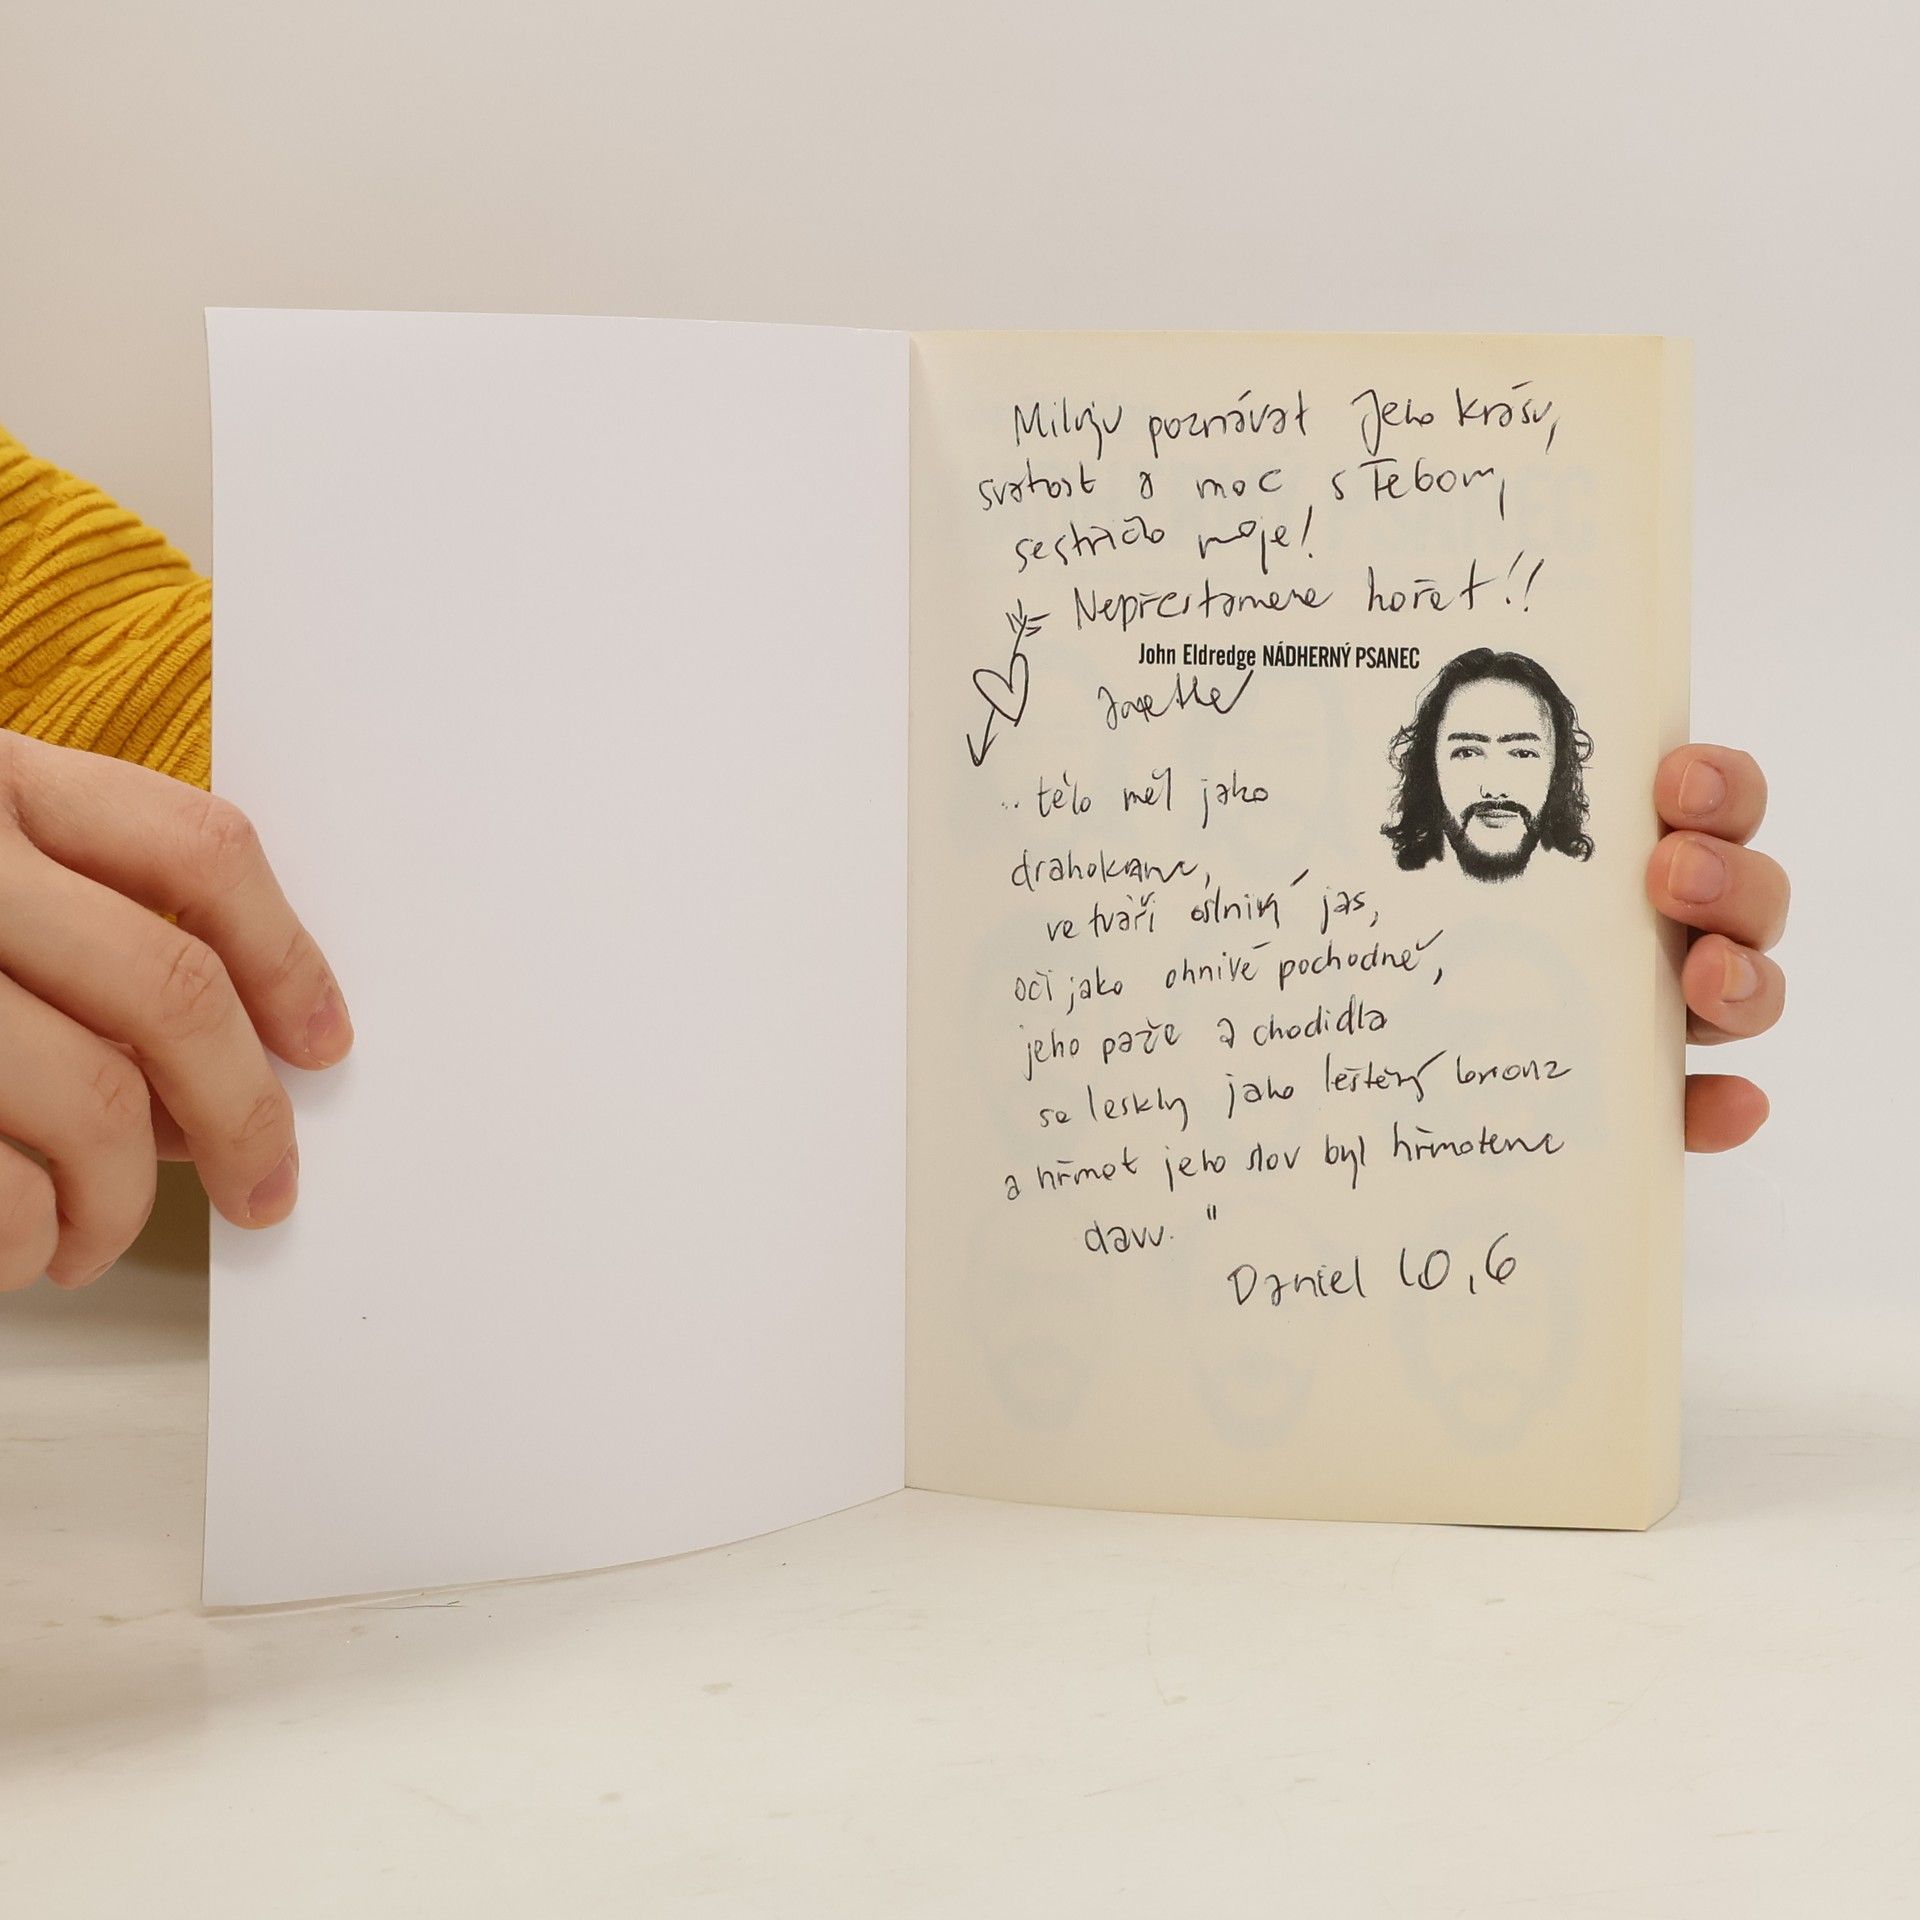 Miluju poznávat Jeho krásu,
svatost a moc s Tebou,
sestřičko moje!
Nepřestaneme hořet!!
John Eldredge NÁDHERNÝ PSANEC
„tělo měl jako
drahokam,
ve tváři oslnivý jas,
oči jako ohnivé pochodně,
jeho paže a chodidla
se leskly jako leštěný bronz
a hřmot jeho slov byl hřmotem
davu."
Daniel 10,6